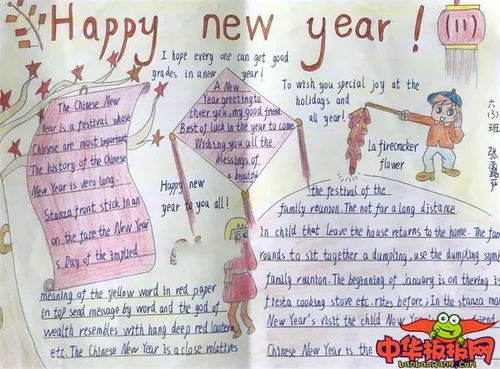 Happy new year!
I hope every one can get good
grades in a new year!
The Chinese New
Year is a festival whose
Chinese are most important
The history of the Chinese
New Year is very long.
Stanza front stick in an
on the face the New Year
s Day of the implied
meaning of the yellow word in red paper
in top send message by word and the god of
wealth resembles with hang deep red lantern
etc. The Chinese New Year is a close relatives
A New
Year greeting to
cheer you, my good friend.
Best of luck in the year to come
Wishing you all the
blessings of
a beautiful
Happy new
year to you all!
To wish you special joy at the
holidays and
all year!
La firecracker
flower
六(3)班
the festival of the
family reunion. The not far long distance
in child that leave the house returns to the home. The fam
rounds to sit together a dumpling, use the dumpling symb
family reunion. The beginning of January is on thering is
fiesta cooking stove etc. rites before; In the stanza
New Year's visit the child New friend
Chinese New Year is the
中华板报网
banbaowang.com